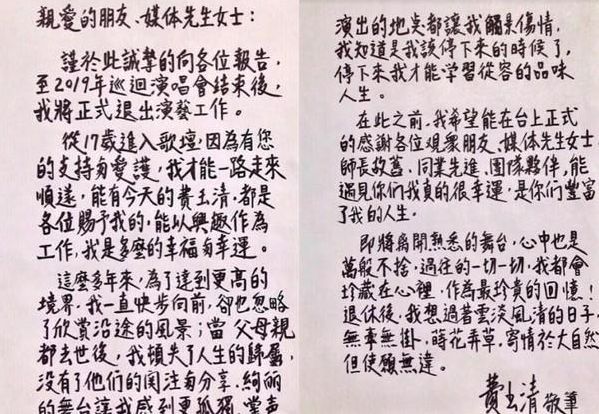 親愛的朋友、媒体先生女士：
謹於此誠摯的向各位報告，
至2019年巡迴演唱會結束後，
我將正式退出演藝工作。
從17歲進入歌壇，因為有您
的支持与愛護，我才能一路走來
順遂，能有今天的費玉清，都是
各位賜予我的，能以興趣作為
工作，我是多麼的幸福与幸運。
這麼多年來，為了達到更高的
境界，我一直快步向前，卻也忽略
了欣賞沿途的風景；當父母親
都去世後，我頓失了人生的歸屬，
沒有了他們的関注与分享，絢麗
的舞台讓我感到更孤獨，掌声
演出的地点都讓我觸景傷情，
我知道是我該停下來的時候了，
停下來我才能学習從容的品味
人生。
在此之前，我希望能在台上正式
的感謝各位观衆朋友、媒体先生女士、
師長故舊、同業先進、团隊夥伴，能
遇見你們我真的很幸運，是你們豐富
了我的人生。
即將離開熟悉的舞台，心中也是
萬般不捨，過往的一切一切，我都會
珍藏在心裡，作為最珍貴的回憶！
退休後，我想過著雲淡風清的日子，
無牽無掛，時花弄草，寄情於大自然
但使願無違。
費玉清 敬筆